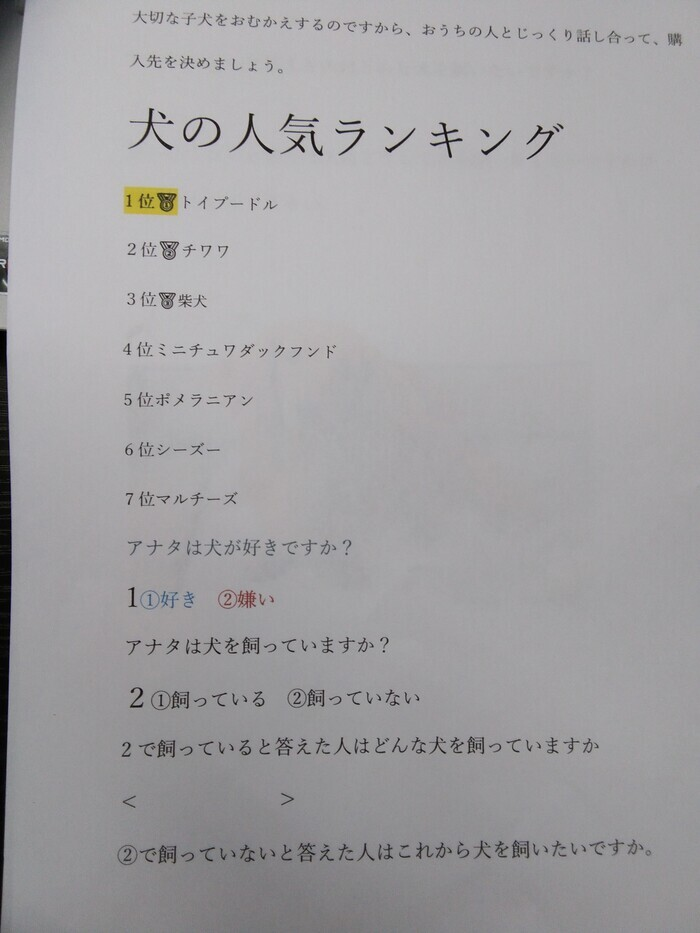 大切な子犬をおむかえするのですから、おうちの人とじっくり話し合って、購
入先を決めましょう。
犬の人気ランキング
1位🥇トイプードル
2位🥈チワワ
3位🥉柴犬
4位ミニチュワダックフンド
5位ポメラニアン
6位シーズー
7位マルチーズ
アナタは犬が好きですか？
1①好き　②嫌い
アナタは犬を飼っていますか？
2 ①飼っている　②飼っていない
2で飼っていると答えた人はどんな犬を飼っていますか
＜　　　　　　　＞
②で飼っていないと答えた人はこれから犬を飼いたいですか。